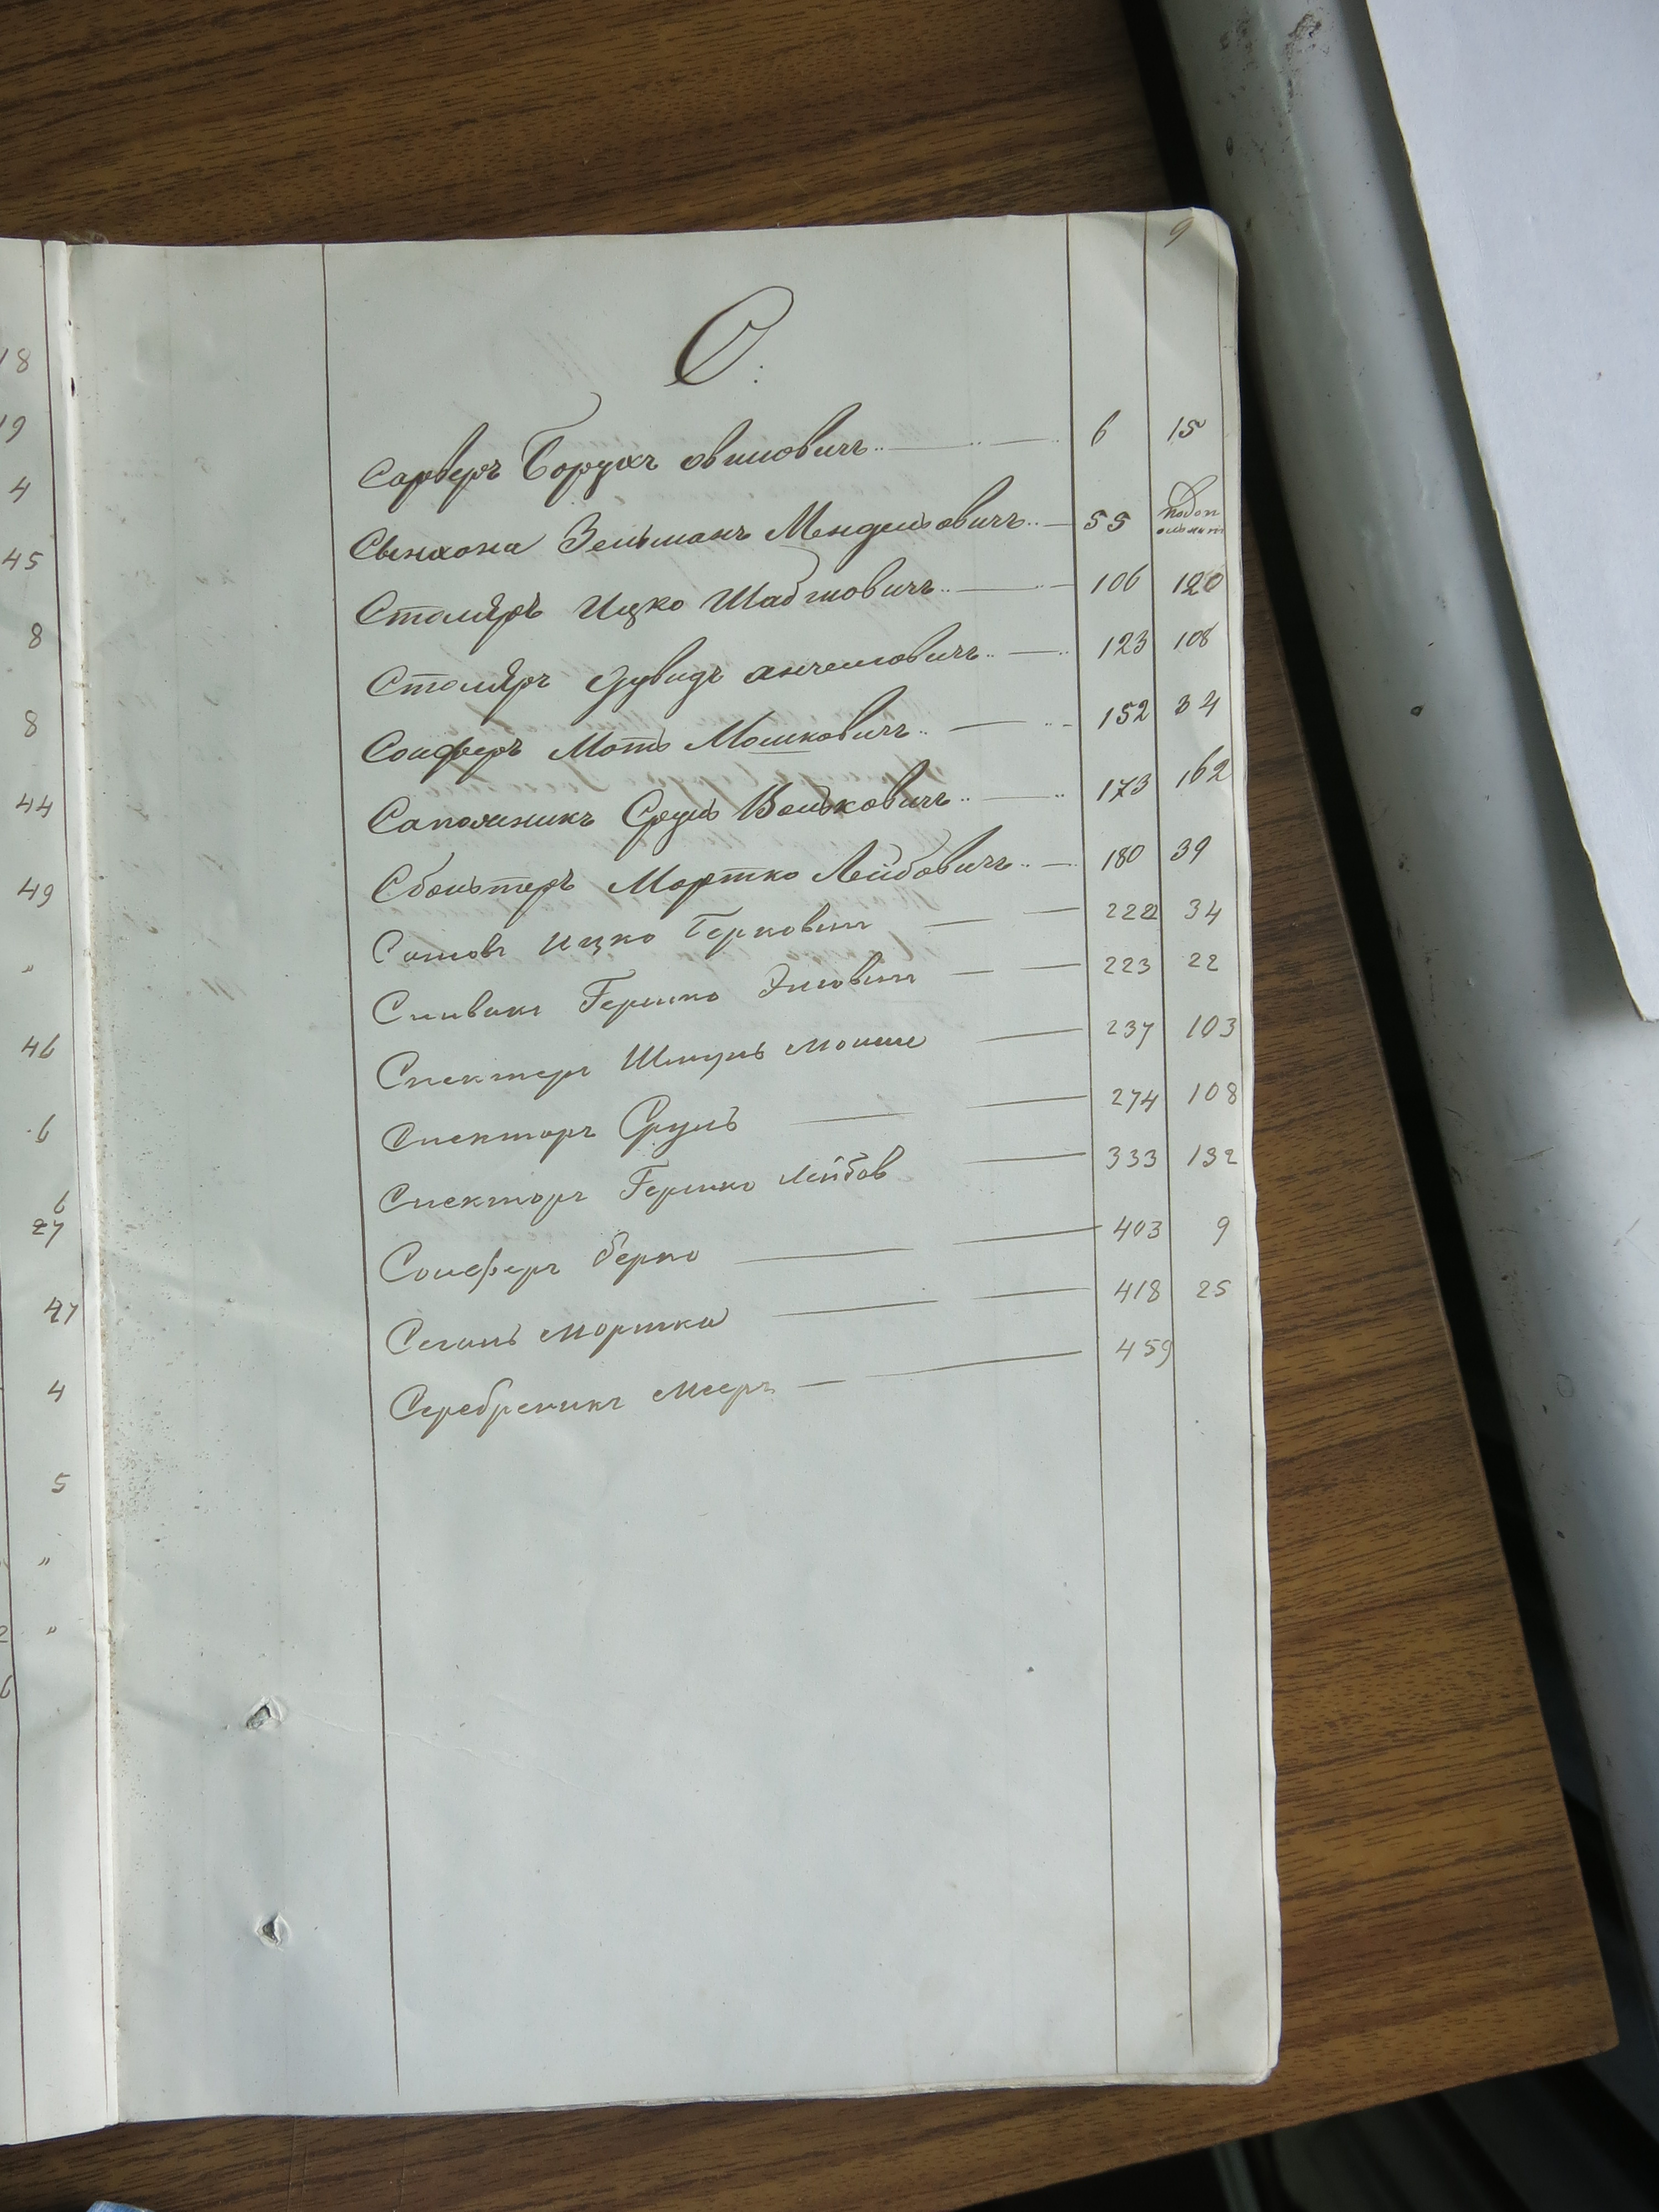 9
С:
Сарверъ Борухъ Овшовичъ 6 15
Зельманъ Мендельовичъ 55
Столяръ Ицко 106 120
Столяръ Дувидъ Анчеловичъ 123 108
Соиферъ Мотъ Мошковичъ 152 34
Сапожникъ Сруль Вольковичъ 173 162
Мортко Лейбовичъ 180 39
Ицко Берковичъ 222 34
Спивакъ Гершко Элиовичъ 223 22
Спекторъ Шмуль Мойше 237 103
Спекторъ Сруль 274 108
Спекторъ Гершко Лейбов 333 132
Соиферъ Берко 403 9
Сегаль Мортка 418 25
Серебреникъ Мееръ 459
18
19
4
45
8
8
44
49
"
46
6
6
27
47
4
5
"
"